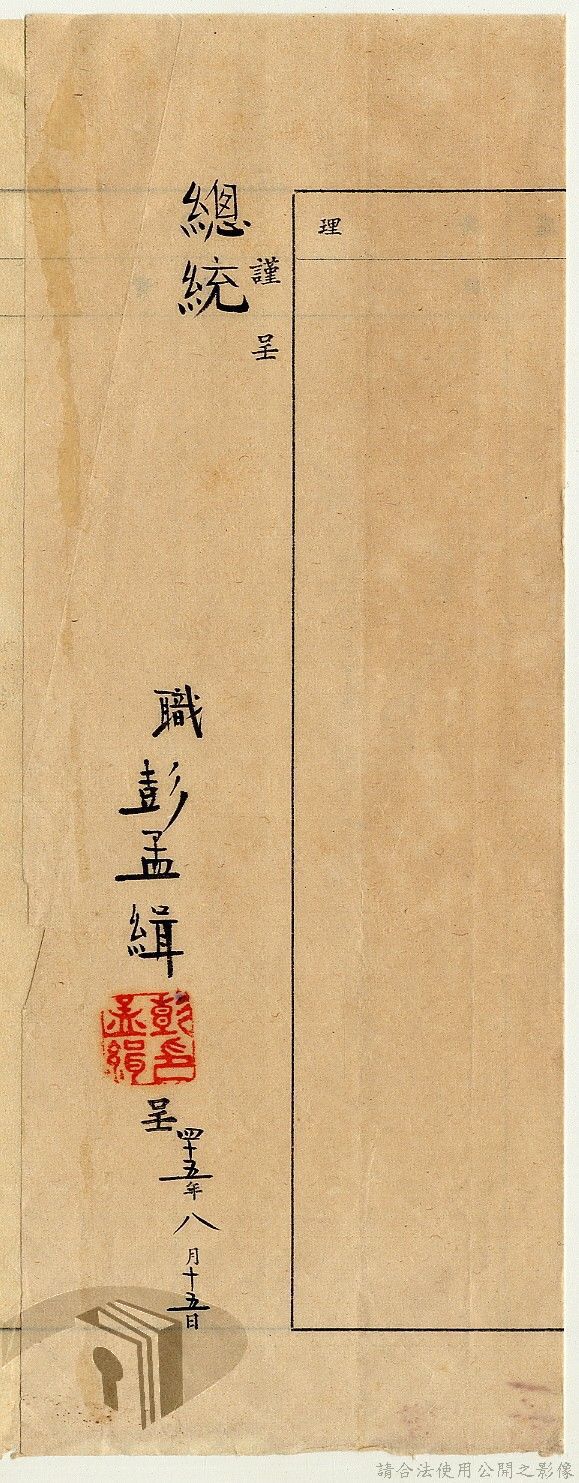 理
謹呈
總統
職彭孟緝
彭孟緝印
呈
四十五年八月十五日
請合法使用公開之影像